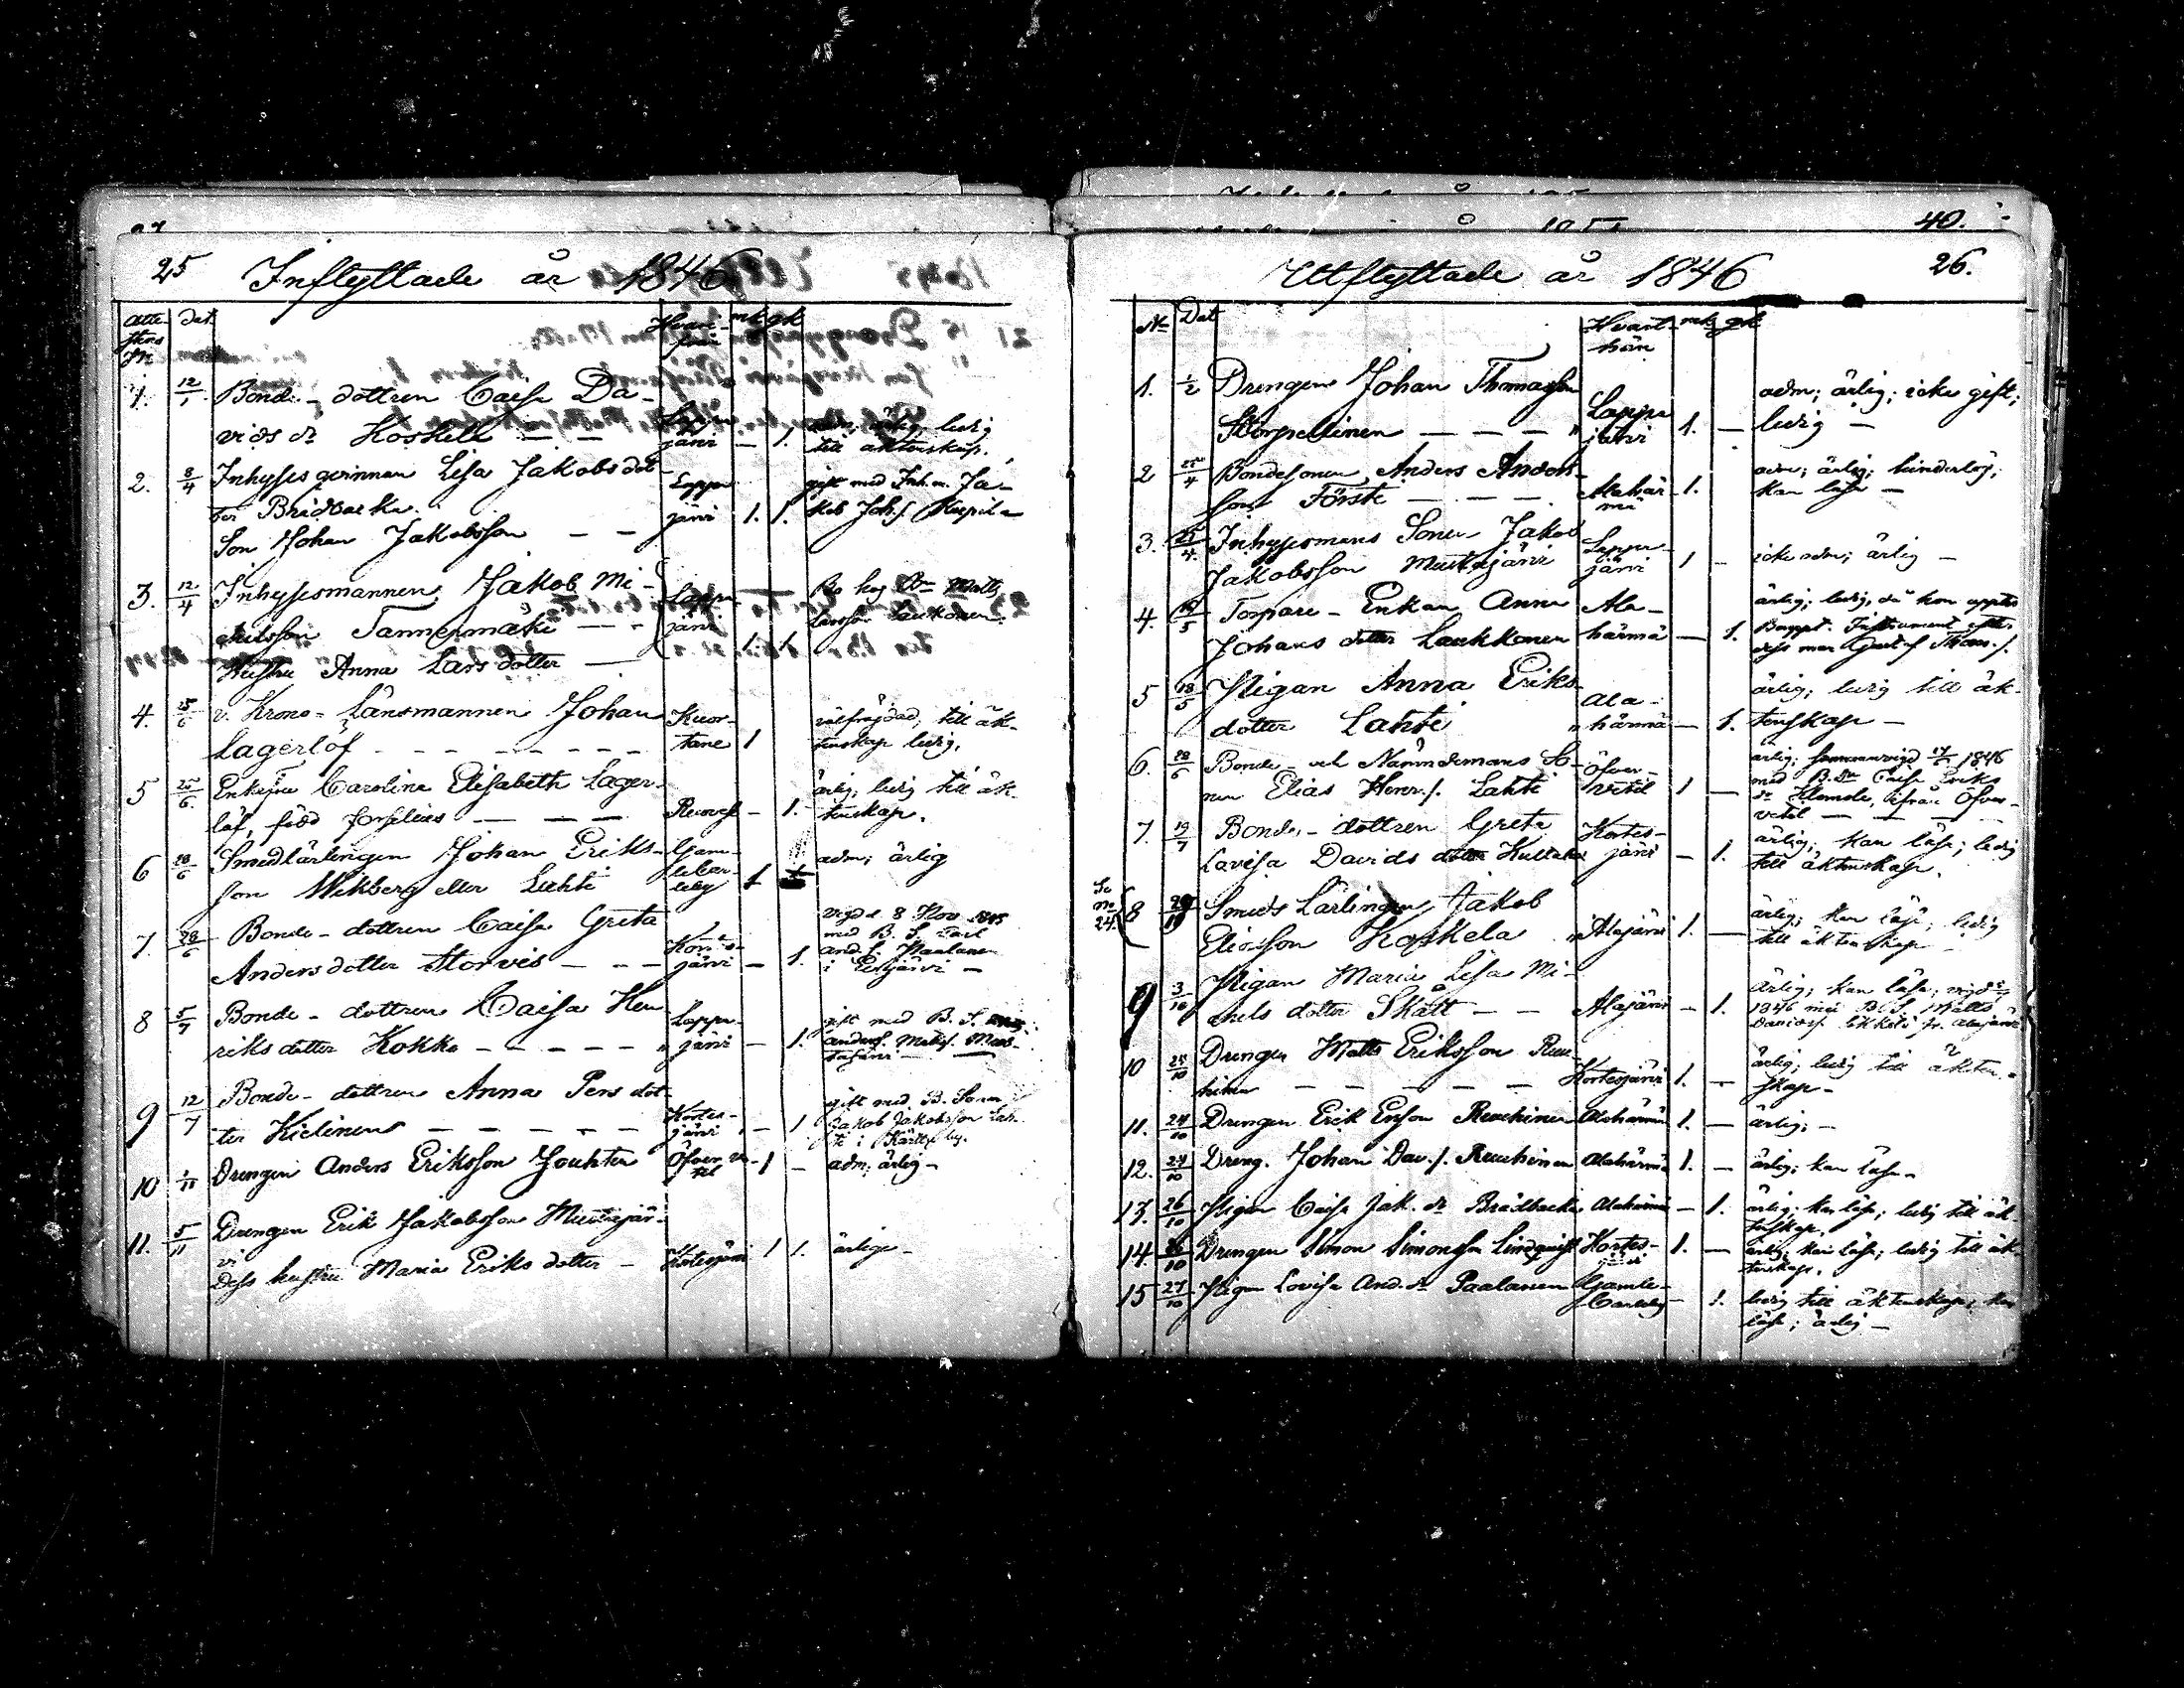 25 Inflyttade år 1846
Atte-
stens
No
dat
Hvari-
från
mk
qk
1. 12/1 Bonde-dottren Caisa Da-
vids dr Koskela — — Lappa
järvi — 1. adm; ärlig, ledig
till äktenskap.
2. 8/4 Inhysesqvinnan Lisa Jakobs dot-
ter Bridbacka.
Lappa
järvi 1. 1. gift med Inh.m. Ja-
kob Joh.s.
Son Johan Jakobsson — —
3. 12/4 Inhysesmannen Jakob Mi-
chelsson Tannermäki — —
Hustru Anna Lars dotter —
Lappa
järvi 1. 1.
Larsson Laukonen.
4. 25/6 v. Krono-Länsmannen Johan
Lagerlöf - - - - - -
Kuor-
tane 1
välfräjdad, till äk-
tenskap ledig.
5 25/6 Enkefru Carolina Elisabeth Lager-
löf, född Forselius — — —
— 1. ärlig, ledig till äk-
tenskap.
6 28/6 Smedlärlingen Johan Eriks-
son Wikberg eller Lahti
Gam-
lecar-
leby 1 adm; ärlig
7. 28/6 Bonde-dottren Caisa Greta
Anders dotter Storvis — — —
Kortes-
järvi — 1.
vigd d. 8 Nov 1845
med B. S. Carl
And.s. Paalanen
i
8 5/7 Bonde-dottren Caisa Hen
riks dotter Kokko - - - - -
Lappa-
järvi — 1. gift med B. S.
Anders Matts. Mus-
tajärvi —
9 12/7 Bonde-dottren Anna Pers dot-
ter Kielinen — — — — —
Kortes-
järvi — 1
gift med B. Sonen
Jakob Jakobsson Lah-
ti i by.
10 1/11 Drengen Anders Eriksson Jouhten
Öfver ve-
til 1 — adm; ärlig —
11. 5/11 Drengen Erik Jakobsson Mustajär-
vi
Dess hustru Maria Eriks dotter — Kortesjärvi 1 1. ärlige —
40.
Utflyttade år 1846 26.
No Dat Hvart-
hän mk qk
1. 1/2 Drengen Johan Thomasson
Storpellinen — — — "
Lappa
järvi 1. —
adm; ärlig; icke gift;
ledig —
2 25/4 Bondesonen Anders Anders-
son Förste — — —
Alahär-
mä 1.
adm; ärlig; hinderlös;
kan läsa —
3. 25/4 Inhysesmans Sonen Jakob
Jakobsson Mustajärvi
Lappa-
järvi 1 — icke adm; ärlig —
4. 10/5 Torpare-Enkan Anna
Johans dotter Laukkonen
Ala-
härmä — 1.
ärlig; ledig, då hon
dess man Gustaf Thoms.s.
5 18/5 Pigan Anna Eriks-
dotter Lahti
Ala-
härmä — 1.
ärlig; ledig till äk-
tenskap —
6. 28/6 Bonde- och Nämndemans So-
nen Elias Henr.s. Lahti
Öfver-
vetil 1 —
ärlig; sammanvigd 1846
med B. dr Caisa Eriks
dr ifrån Öfver-
vetil — — — —
7. 19/7 Bonde-dottren Greta
Lovisa Davids dotter Kultalax
Kortes-
järvi — 1.
ärlig; kan läsa; ledig
till äktenskap.
Se
No
24.
8 Smeds Lärlingen Jakob
Eliasson Koskela " Alajärvi 1. —
ärlig; kan läsa; ledig
till äktenskap —
9 3/10 Pigan Maria Lisa Mi-
chels dotter Skått — — Alajärvi — 1.
Ärlig; kan läsa; vigd
1846 med B. S. Matts
Davids. fr. Alajärvi
10 25/10 Drengen Matts Eriksson Ruu-
hinen — — — — — Kortesjärvi 1. —
ärlig; ledig till äkten-
skap —
11. 24/10 Drengen Erik Ersson Ruuhinen Alahärmä 1. — ärlig; —
12. 24/10 Dreng. Johan Dav.s. Ruuhinen Alahärmä 1. — ärlig; kan läsa —
13. 26/10 Pigan Caisa Jak. dr Brädbacka Alahärmä — 1. ärlig; kan läsa; ledig till äk-
tenskap.
14. 26/10 Drengen Simon Simonsson Lindqvist Kortes-
järvi 1. — ärlig; kan läsa; ledig till äk-
tenskap.
15 27/10 Pigan Lovisa And. dr Paalanen Gamle-
Carleby — 1. ledig till äktenskap; kan
läsa; ärlig —